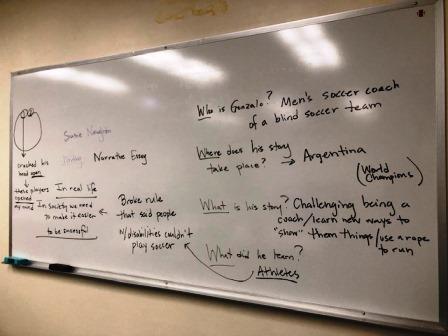 Who is Gonzalo? Men's soccer coach
of a blind soccer team
Where does his story
take place? → Argentina
(World
Champions)
What is his story? Challenging being a
coach/learn new ways to
"show" them things/use a rope
to run
What did he learn?
Athletes
Narrative Essay
Broke rule
that said people
w/disabilities couldn't
play soccer
In real life
In society we need
to make it easier
to be successful
cracked his
head open
these players
opened
my mind